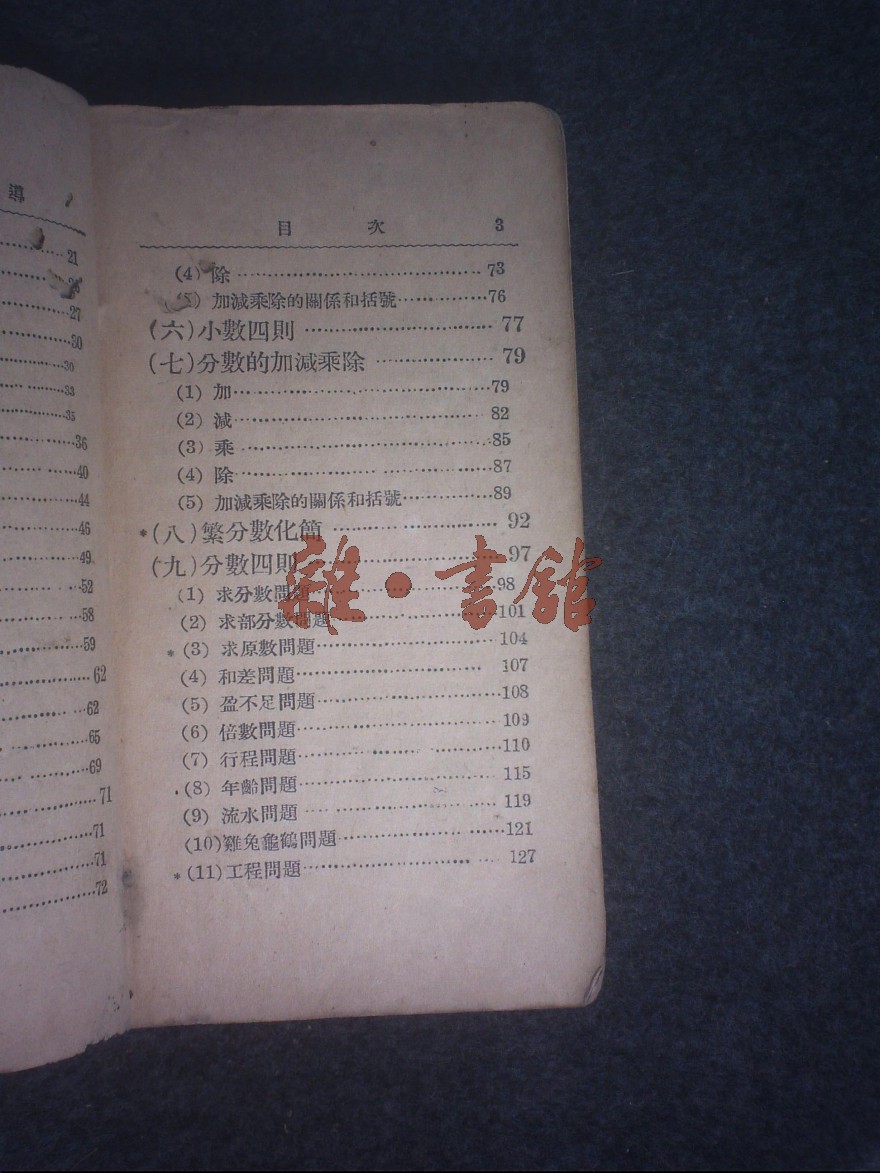 21
27
30
30
33
35
36
40
44
46
49
52
58
59
62
62
65
69
71
71
71
72
目 次 3
(4) 除 73
(5) 加減乘除的關係和括號 76
(六)小數四則 77
(七)分數的加減乘除 79
(1) 加 79
(2) 減 82
(3) 乘 85
(4) 除 87
(5) 加減乘除的關係和括號 89
*(八)繁分數化簡 92
(九)分數四則 97
(1) 求分數問題 98
(2) 求部分數問題 101
*(3) 求原數問題 104
(4) 和差問題 107
(5) 盈不足問題 108
(6) 倍數問題 109
(7) 行程問題 110
(8) 年齡問題 115
(9) 流水問題 119
(10)雞兔龜鶴問題 121
*(11)工程問題 127
雜·書館